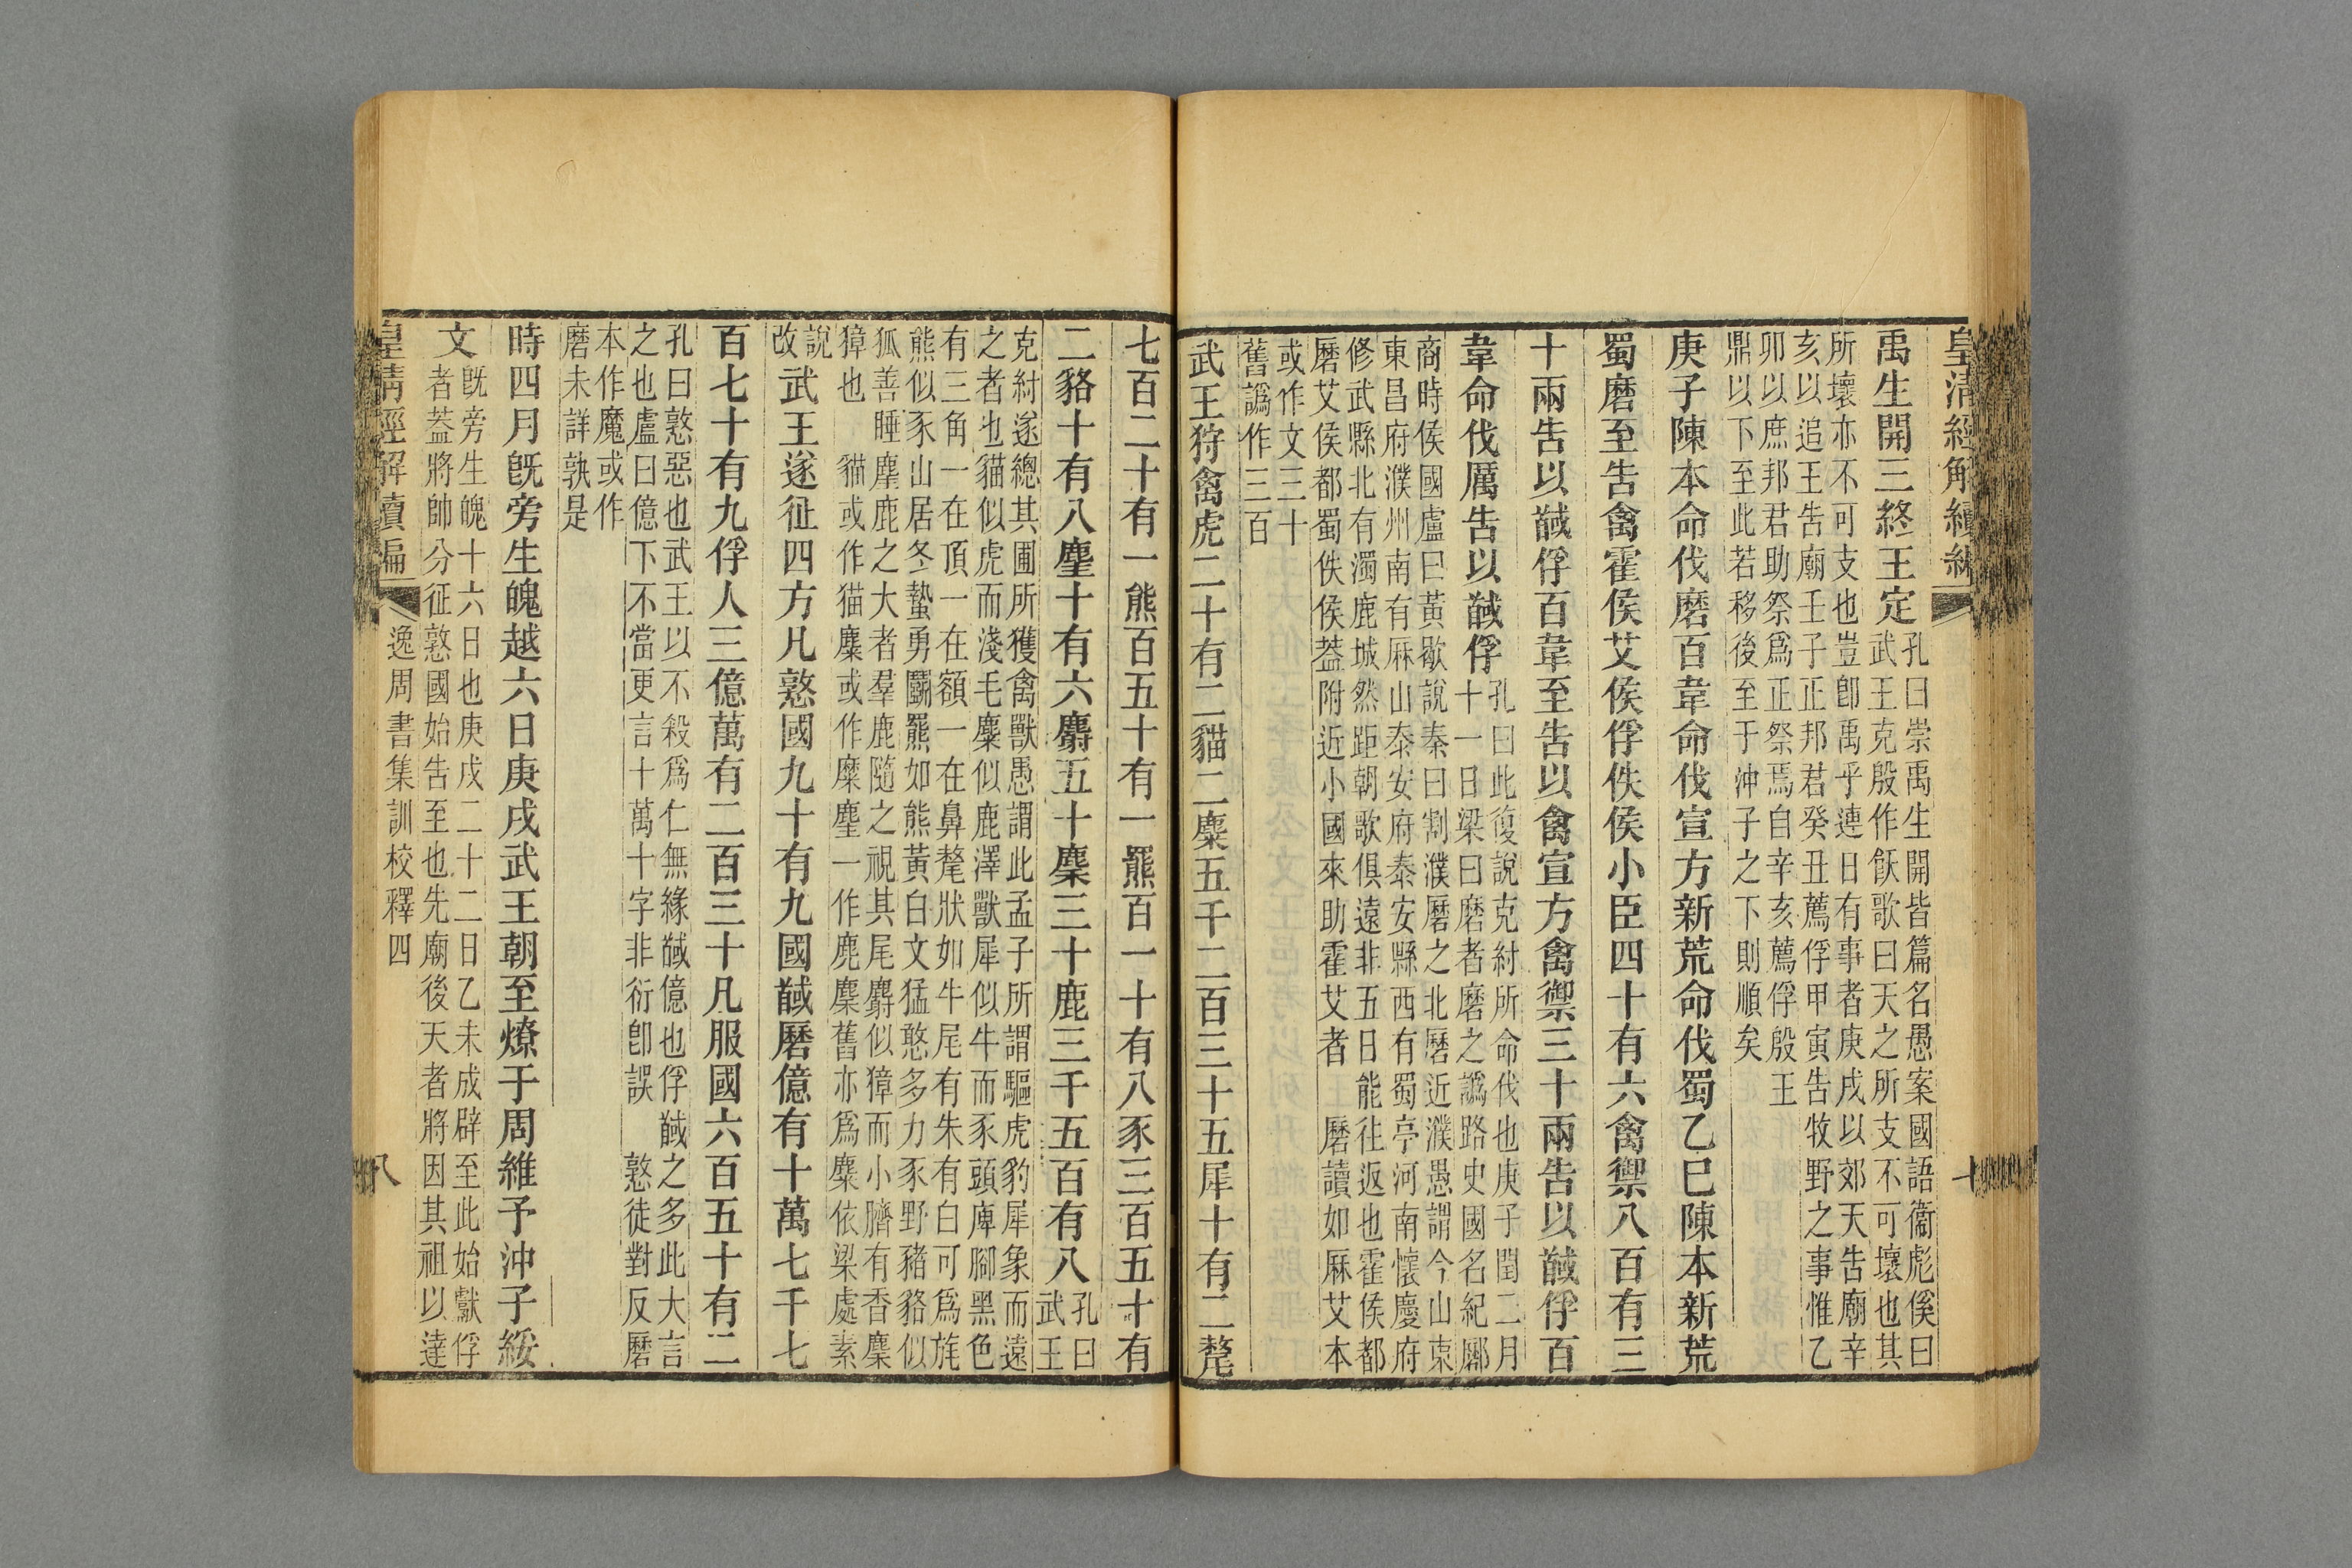 皇清經解續編
禹生開三終王定
孔曰崇禹生開皆篇名愚案國語衞彪傒曰
武王克殷作飫歌曰天之所支不可壞也其
所壞亦不可支也豈卽禹乎連日有事者庚戌以郊天告廟辛
亥以追王告廟壬子正邦君癸丑薦俘甲寅告牧野之事惟乙
卯以庶邦君助祭爲正祭焉自辛亥薦俘殷王
鼎以下至此若移後至于沖子之下則順矣
庚子陳本命伐磨百韋命伐宣方新荒命伐蜀乙巳陳本新荒
蜀磨至告禽霍侯艾侯俘佚侯小臣四十有六禽禦八百有三
十兩告以馘俘百韋至告以禽宣方禽禦三十兩告以馘俘百
韋命伐厲告以馘俘
孔曰此復說克紂所命伐也庚子閏二月
十一日梁曰磨者磨之譌路史國名紀
商時侯國盧曰黃歇說秦曰割濮磿之北磿近濮愚謂今山東
東昌府濮州南有厤山泰安府泰安縣西有蜀亭河南懷慶府
修武縣北有濁鹿城然距朝歌俱遠非五日能往返也霍侯都
磿艾侯都蜀佚侯葢附近小國來助霍艾者 磿讀如厤艾本
或作文三十
舊譌作三百
武王狩禽虎二十有二貓二麋五千二百三十五犀十有二氂
七百二十有一熊百五十有一羆百一十有八豕三百五十有
二貉十有八麈十有六麝五十麋三十鹿三千五百有八
孔曰
武王
克紂遂總其圃所獲禽獸愚謂此孟子所謂驅虎豹犀象而遠
之者也貓似虎而淺毛麋似鹿澤獸犀似牛而豕頭庳腳黑色
有三角一在頂一在額一在鼻氂狀如牛尾有朱有白可爲旄
熊似豕山居冬蟄勇鬭羆如熊黃白文猛憨多力豕野豬貉似
狐善睡麈鹿之大者羣鹿隨之視其尾麝似獐而小臍有香麋
獐也 貓或作猫麋或作糜麈一作麃麋舊亦爲麋依梁處素
說
改
武王遂征四方凡憝國九十有九國馘磿億有十萬七千七
百七十有九俘人三億萬有二百三十凡服國六百五十有二
孔曰憝惡也武王以不殺爲仁無緣馘億也俘馘之多此大言
之也盧曰億下不當更言十萬十字非衍卽誤 憝徒對反磿
本作魔或作
磨未詳孰是
時四月旣旁生魄越六日庚戌武王朝至燎于周維予沖子綏
文
旣旁生魄十六日也庚戌二十二日乙未成辟至此始獻俘
者葢將帥分征憝國始告至也先廟後天者將因其祖以達
皇清經解續編
逸周書集訓校釋四
八